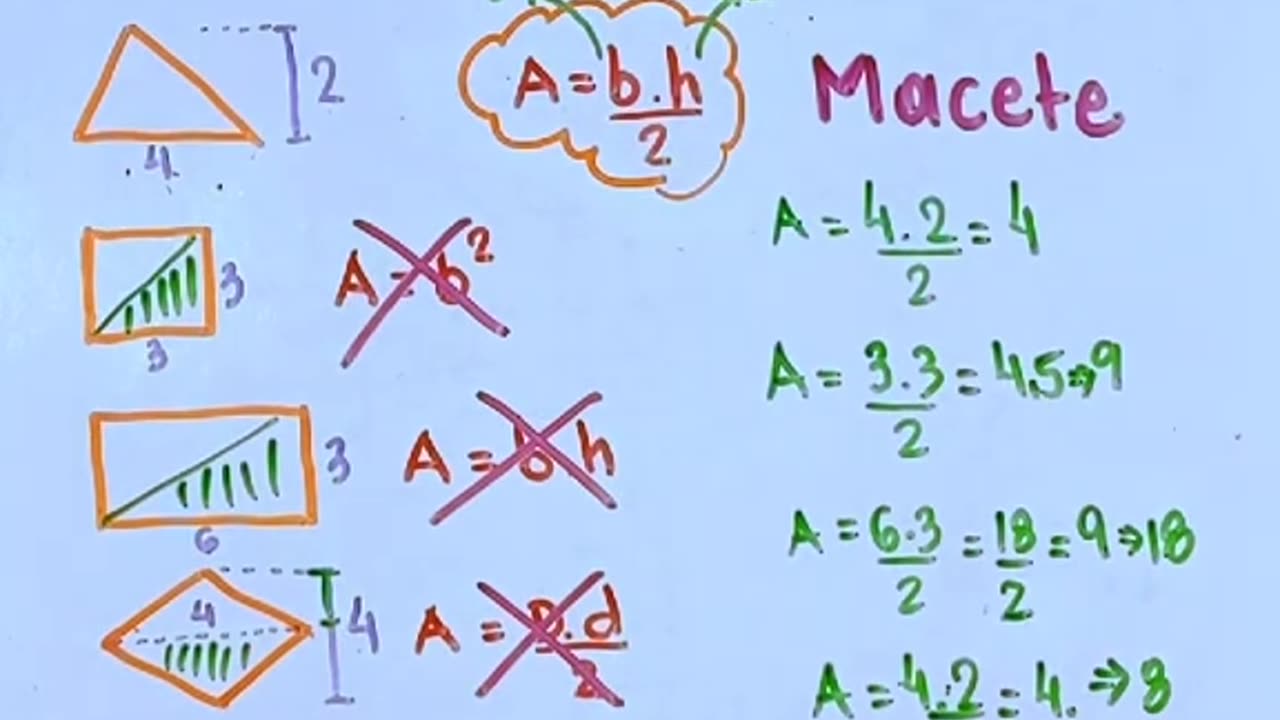 2
4
A = b.h
2
Macete
A = 4.2 = 4
2
3
3
A = b²
A = 3.3 = 4,5 ⇒ 9
2
3
6
A = b h
A = 6.3 = 18 = 9 ⇒ 18
2 2
4
4
A = D.d
2
A = 4.2 = 4. ⇒ 8